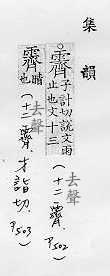 集韻
霽子計切說文雨止也文十三 去聲 (十二霽. P502)
霽晴也 去聲 (十二霽. 才詣切. P503)